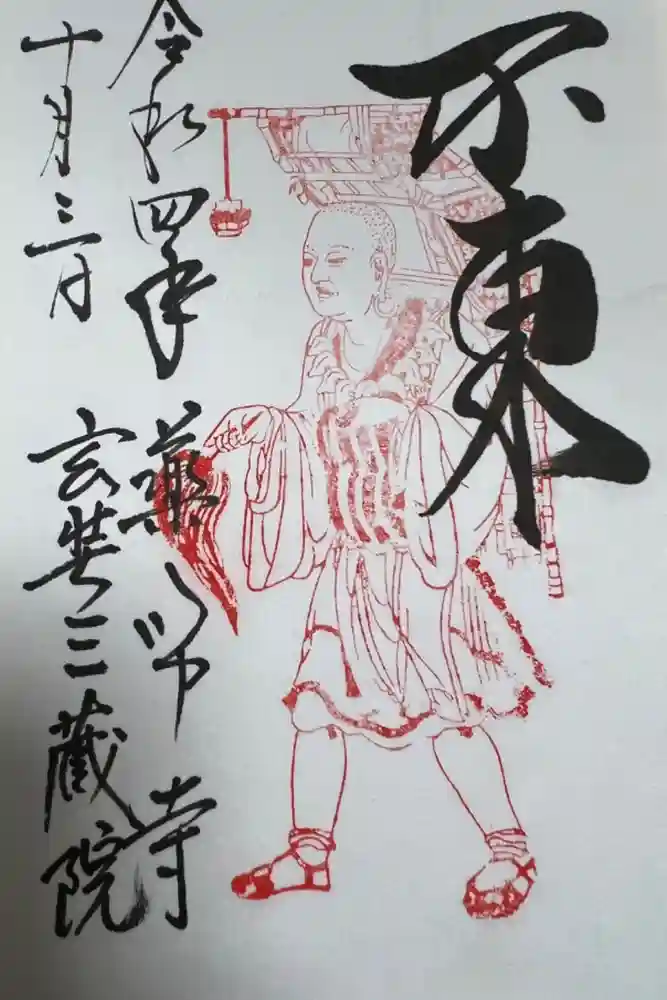 不東
令和四年
十月三日
薬師寺
玄奘三蔵院